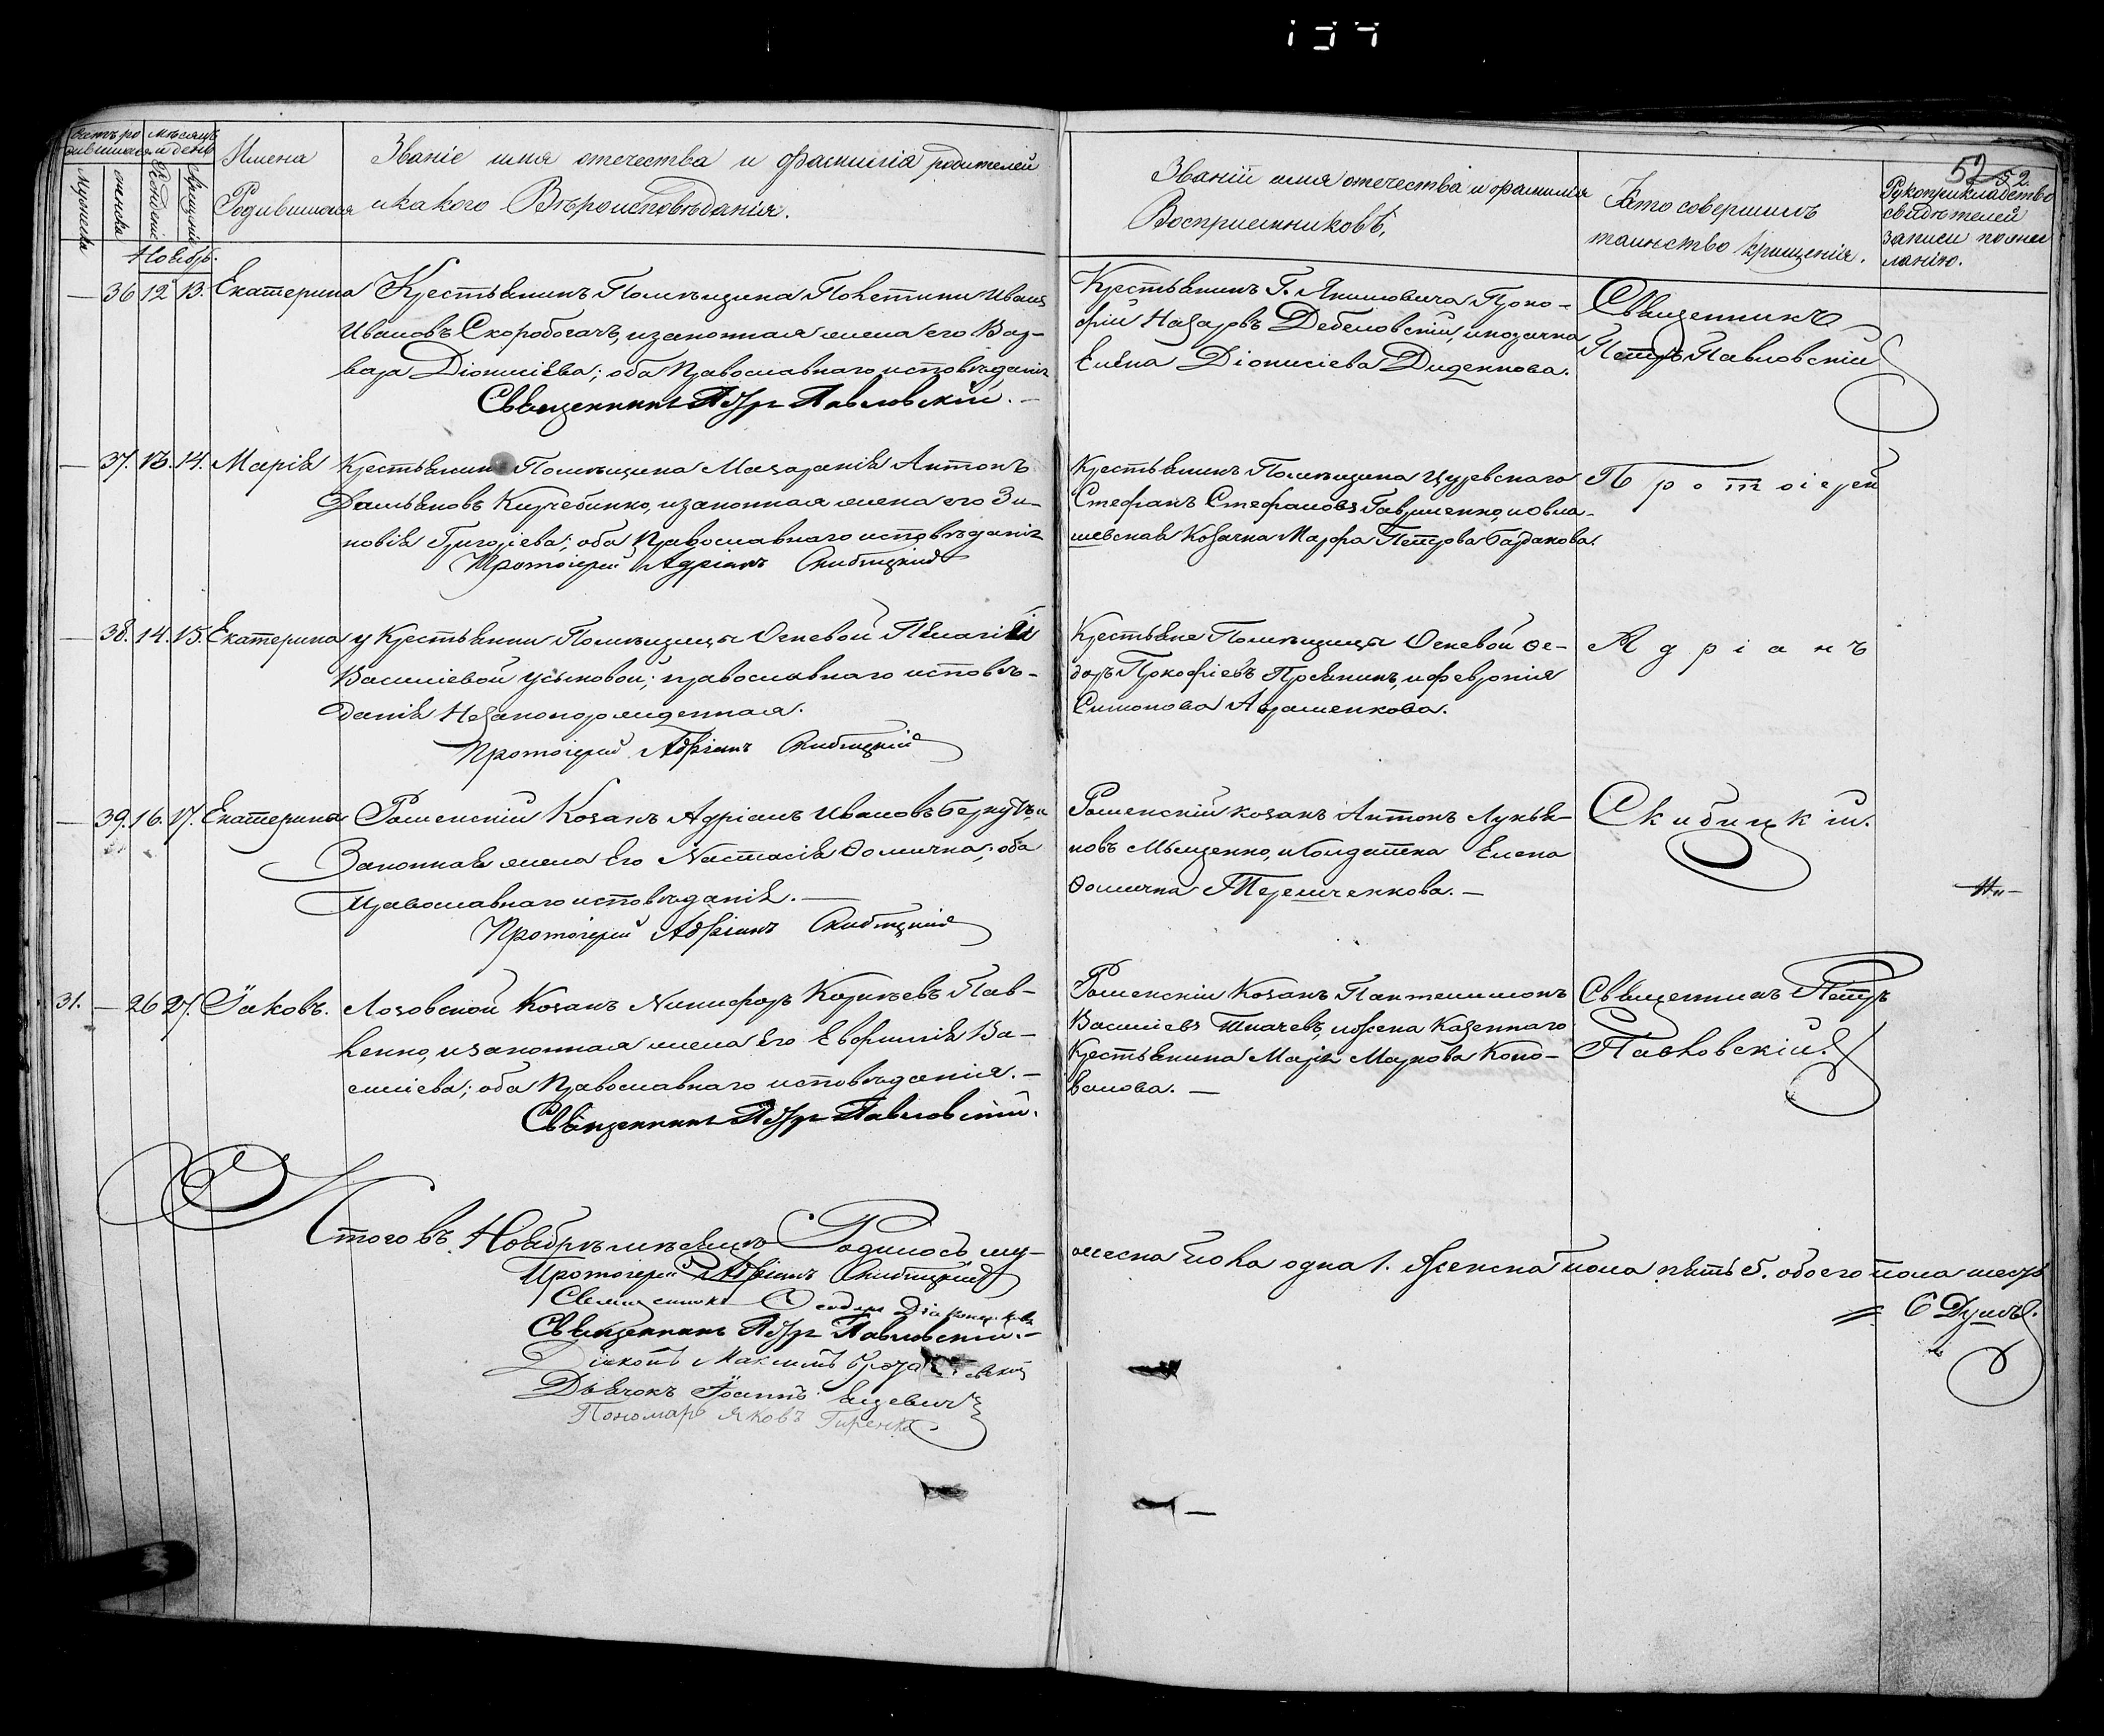 Счетъ родившихся
мѣсяцъ и день
Мужеска
женска
Рожденіе
Крещеніе
Имена
Родившихся
Званіе имя отечества и фамилія родителей
и какого Вѣроисповѣданія.
Званіи имя отечества и фамилія
Воспріемниковъ,
Кто совершилъ
таинство крещенія.
52 52.
Рукоприкладство
свидѣтелей
записи по жел
ланію.
Ноябр.
— 36 12 13. Екатерина
Крестьянинъ Помѣщика Иванъ
Ивановъ Скоробогачъ, и законная жена его Вар-
вара Діонисіева; оба Православнаго исповѣданія
Священникъ Петръ Павловскій. —
Крестьянинъ Г. Якимовича Проко-
фій Назаровъ Дебеловскій, и козачка
Елена Діонисіева Диденкова.
Священникъ
Петръ Павловскій
— 37. 13. 14. Марія
Крестьянинъ Помѣщика Мазаракія Антонъ
Дамьяновъ Кигчебинко, и законная жена его Зи-
новія Григоріева; оба Православнаго исповѣданія
Протоіерей Адріанъ Скибицкій
Крестьянинъ Помѣщика
Стефанъ Стефановъ Гавриленко, и
Козачка Марфа Петрова Байдакова.
Протоіерей
— 38. 14. 15. Екатерина
у Крестьянки Помѣщицы Осневой Пелагіи
Василіевой Усыковой; православнаго исповѣ-
данія Незаконорожденная.
Протоіерей Адріанъ Скибицкій
Крестьяне Помѣщицы Осневой Ѳе-
доръ Прокофіевъ Просяникъ, и Февронія
Симонова Аврашенкова.
Адріанъ
— 39. 16. 17. Екатерина
Роменскій Козакъ Адріанъ Ивановъ Беркутъ, и
Законная жена его Настасія Ѳомична; оба
Православнаго исповѣданія. —
Протоіерей Адріанъ Скибицкій
Роменскій козакъ Антонъ Лукья-
новъ Мыщенко, и Солдатка Елена
Ѳомична Терешченкова. —
Скибицкій.
31. — 26 27. Іаковъ.
Лозовской Козакъ Никифоръ Корнѣевъ Пав-
ленко, и законная жена его Евфимія Ва-
силіева; оба Православнаго исповѣданія. —
Священникъ Петръ Павловскій.
Роменскій Козакъ Пантелимонъ
Василіевъ Ткачевъ, и жена Казеннаго
Крестьянина Марія Маркова Коно-
валова. —
Священникъ Петръ
Павловскій.
Итого въ Ноябрѣ мѣсяцѣ Родилось му-
жеска пола одна 1. женска пола пять 5. обоего пола шесть
= 6 Душъ.
Протоіерей Адріанъ Скибицкій
Священникъ
Священникъ Петръ Павловскій. —
Діаконъ Максимъ
Дьячокъ Іоаннъ Яцевичъ
Пономарь Яковъ Гиренко